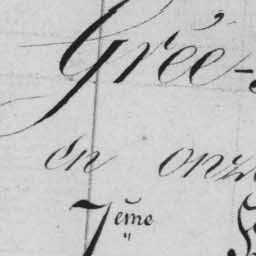 Gréé-
en onz
7ème